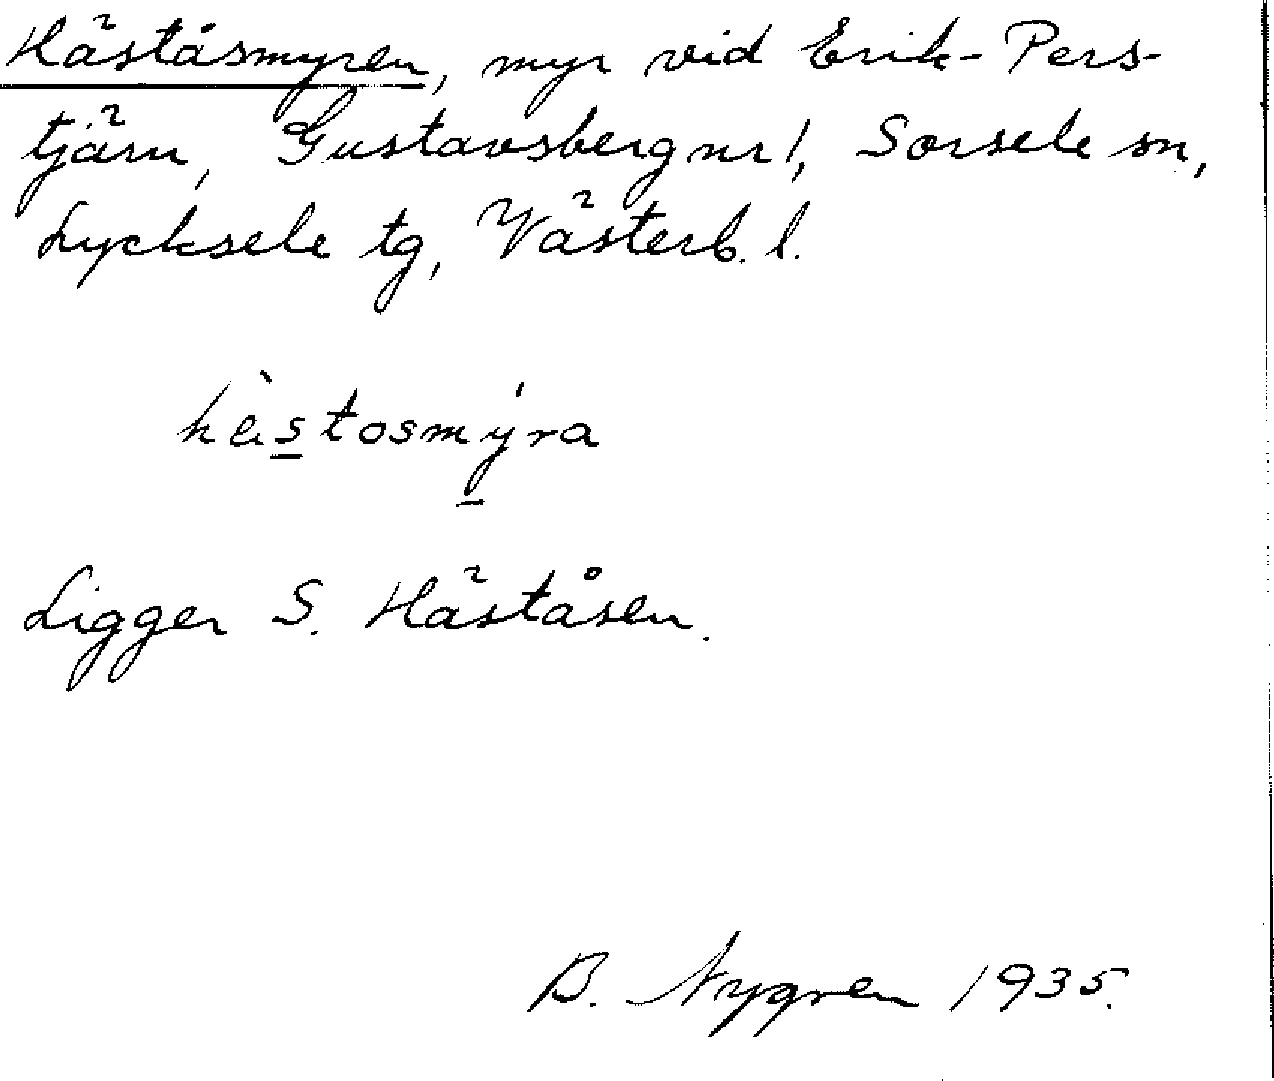 Häståsmyren, myr vid Erik-Pers-
tjärn, Gustavsberg nr 1, Sorsele sn,
Lycksele tg, Västerb. l.
hàstosmýra
Ligger S. Häståsen.
B. Nygren 1935.